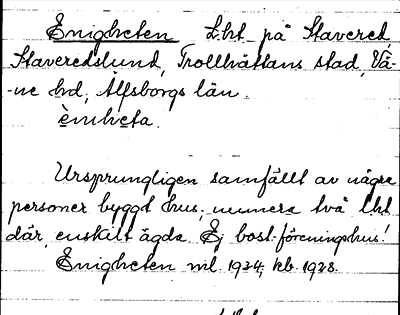 Enigheten Lht på Stavered,
Staveredslund, Trollhättans stad, Vä-
-ne hd, Älfsborgs län.
èniheta.
Ursprungligen samfällt av några
personer byggt hus; numera två lht
där, enskilt ägda. Ej bost.föreningshus!
Enigheten ml. 1934, kb. 1928.